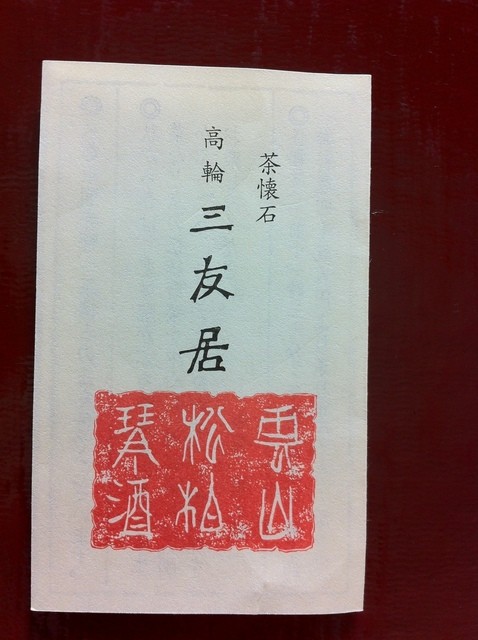 茶懐石
高輪 三友居
雲山
松柏
琴酒